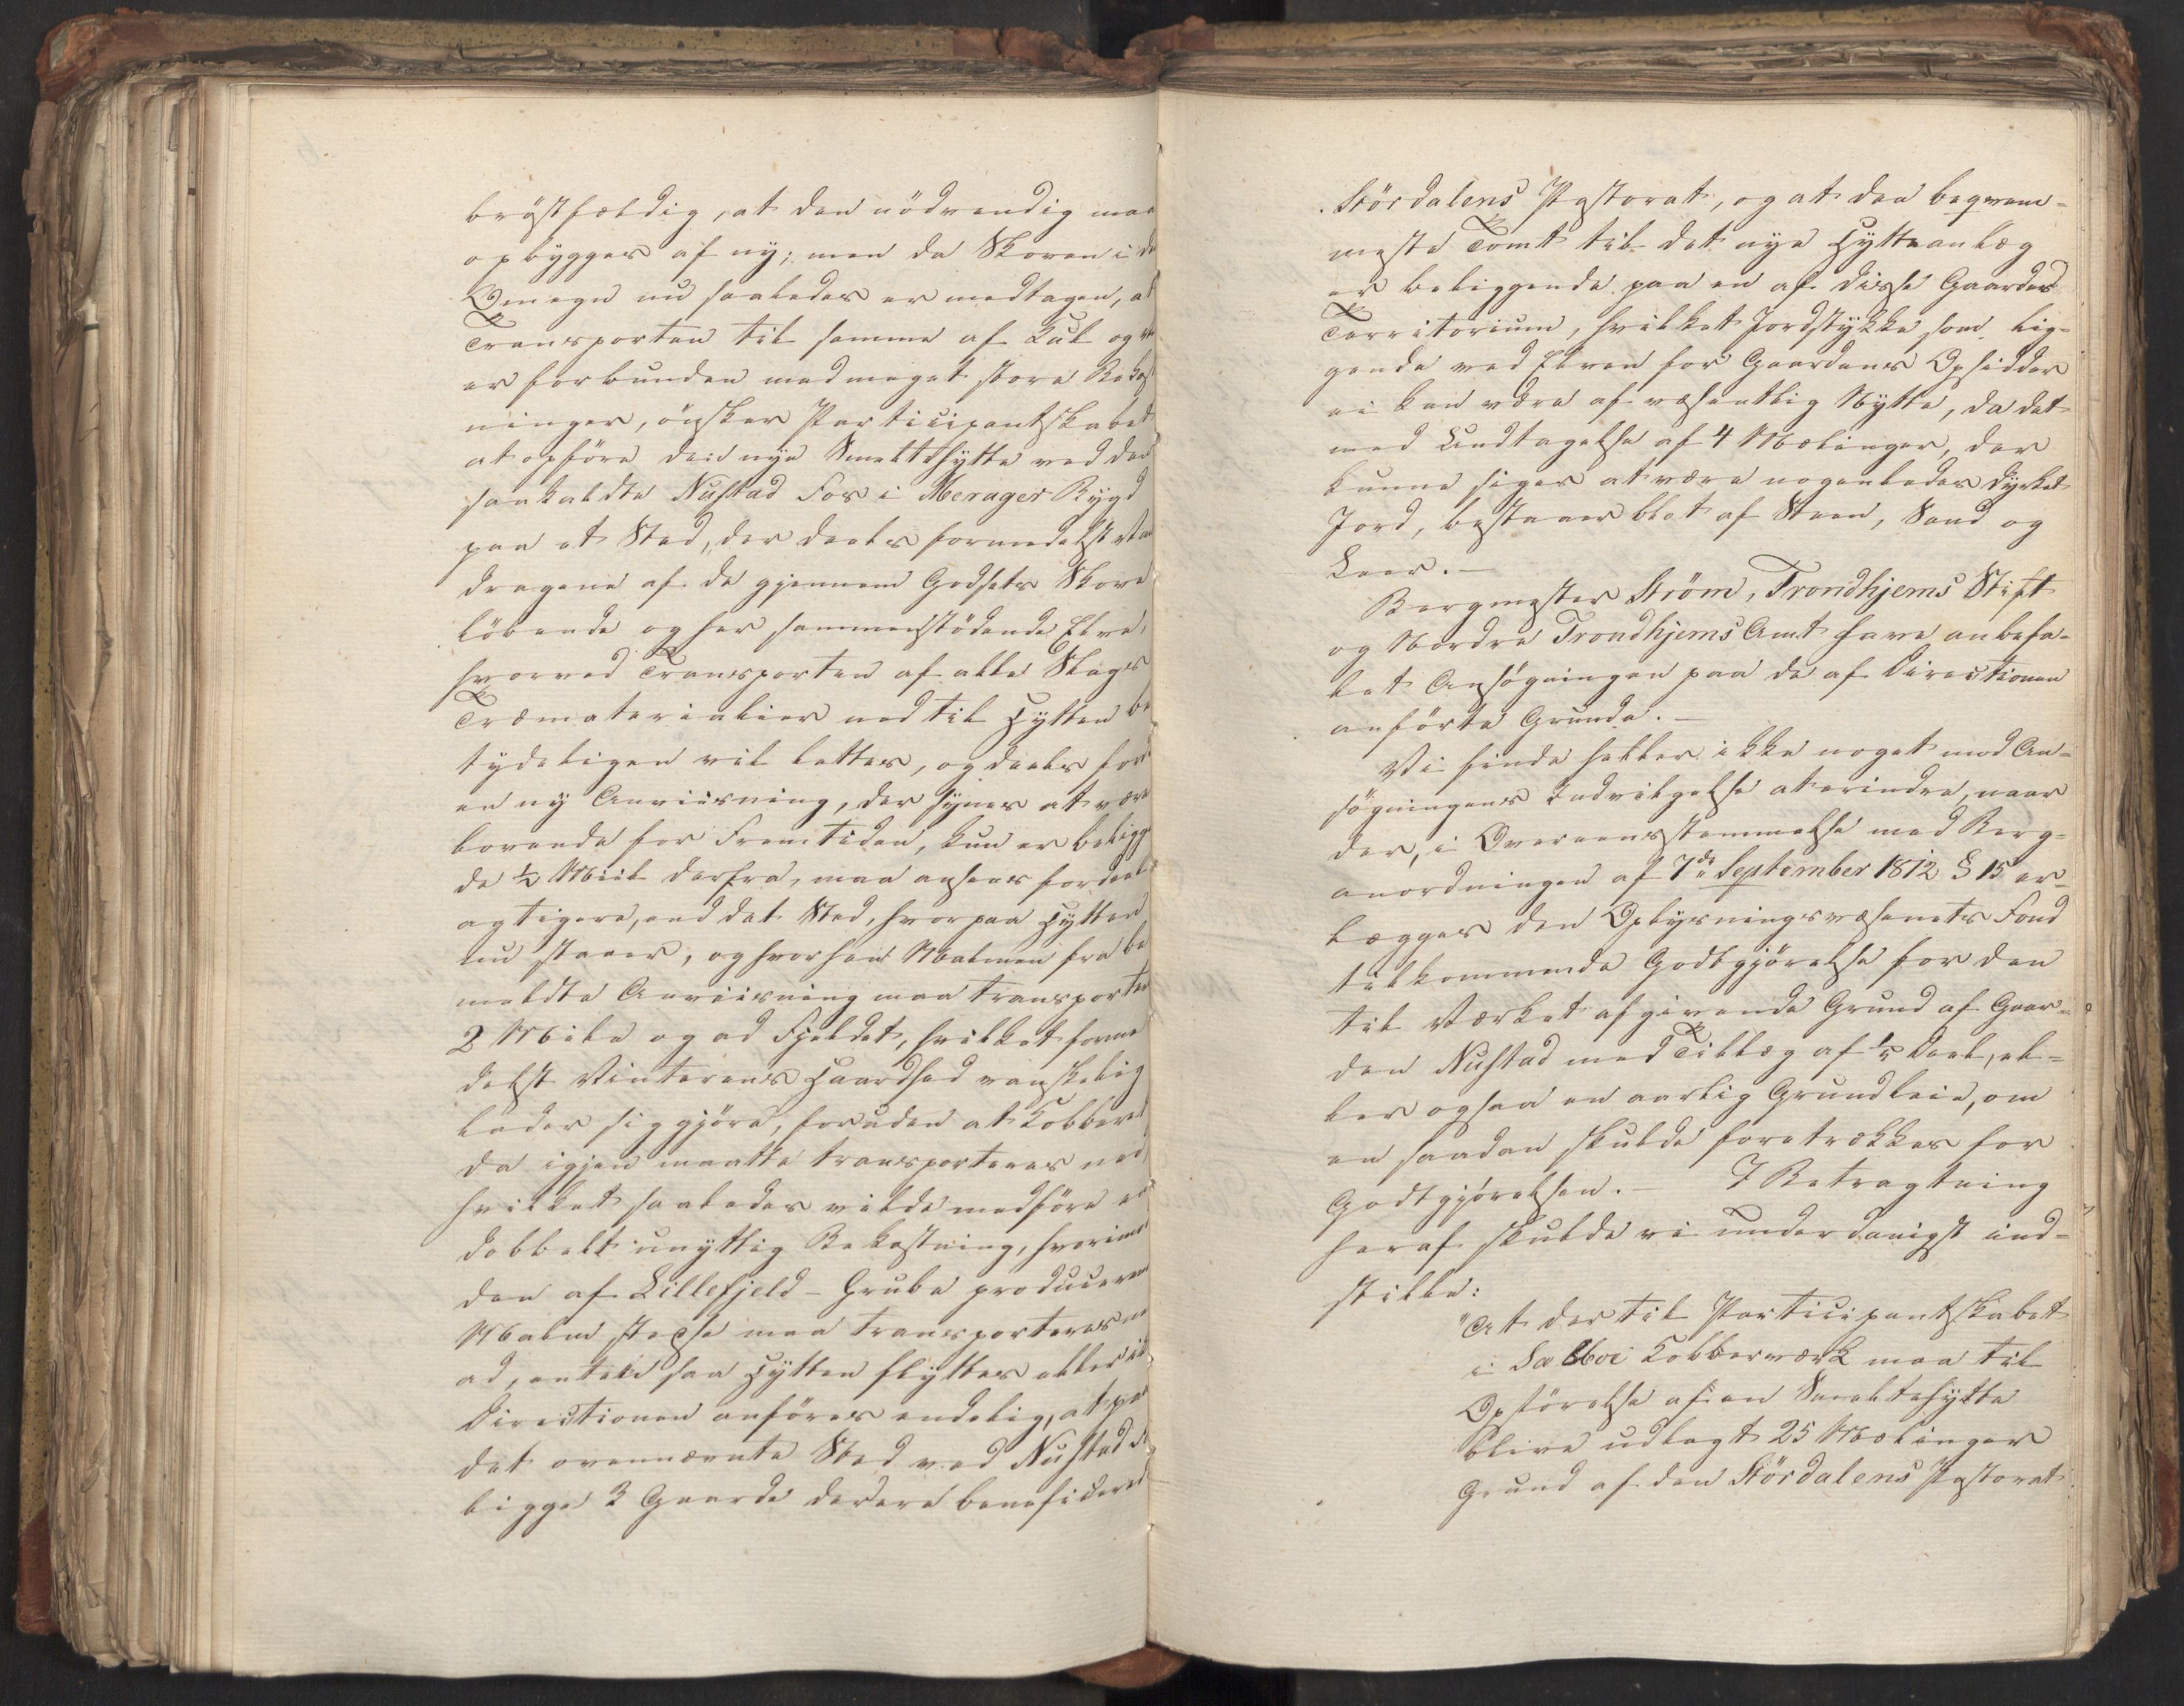 bröstfældig, at den nödvendig maa
opbygges af ny; men da Skoven i de
Omegn nu saaledes er medtagen, at
Transporten til samme af Kul og
er forbunden med meget store Bekost
ninger, önsker Participantskabet
at opföre den nye Smeltehytte ved den
saakaldte Nustad Fos i Merager Bygd
paa et Sted, der deels formedelst Van
dragene af de gjennem Godsets Skove
löbende og her sammenstödende Elve,
hvorved Transporten af alle Slags
Træmaterialier ned til Hytten be
tydeligen vil lettes, og deels fordi
en ny Anviisning, der synes at være
lovende for Fremtiden, kun er beligge
de ½ Miil derfra, maa ansees fordeel
agtigere, end det Sted, hvorpaa Hytten
nu staaer, og hvorhen Malmen fra be
meldte Anviisning maa transporte
2 Mile og ad Fjeldet, hvilket forme
delst Vinterens Haardhed vanskelig
lader sig gjöre, foruden at Kobberet
da igjen maatte transporteres ned,
hvilket saaledes vilde medföre en
dobbelt unyttig Bekostning, hvorimod
den af Lillefjeld-Grube producerende
Malm stedse maa transporteres
ad, enten saa Hytten flyttes eller ik
Directionen anförer endelig, at paa
det ovennævnte Sted ved Nustad
ligge 2 Gaarde der ere beneficeret
Stördalens Pastorat, og at den beqvem-
meste Tomt til det nye Hytteanlæg
er beliggende paa en af disse Gaardes
Territorium, hvilket Jordstykke som lig-
gende ved Elven for Gaardens Opsidder
ei kan være af væsentlig Nytte, da det
med Undtagelse af 4 Mælinger, der
kunne siges at være nogenledes dyrket
Jord, bestaaer blot af Steen, Sand og
Leer.-
Bergmester Ström, Trondhjems Stift
og Nordre Trondhjems Amt have anbefa-
let Ansögningen paa de af Directionen
anförte Grunde.-
Vi finde heller ikke noget mod An-
sögningens Indvilgelse at erindre, naar
der, i Overeensstemmelse med Berg-
anordningen af 7de September 1812 § 15 er-
lægges den Oplysningsvæsenets Fond
tilkommende Godtgjörelse for den
til Værket afgivende Grund af Gaar-
den Nustad med Tillæg af 1/5 Deel, el-
ler ogsaa en aarlig Grundleie, om
en saadan skulde foretrækkes for
Godtgjörelsen.- I Betragtning
heraf skulde vi underdanigst ind-
stille:
"At der til Participantskabet
i Selboe Kobberværk maa til
Opförelse af en Smeltehytte
blive udlagt 25 Mælinger
Grund af den Stördalens Pastorat